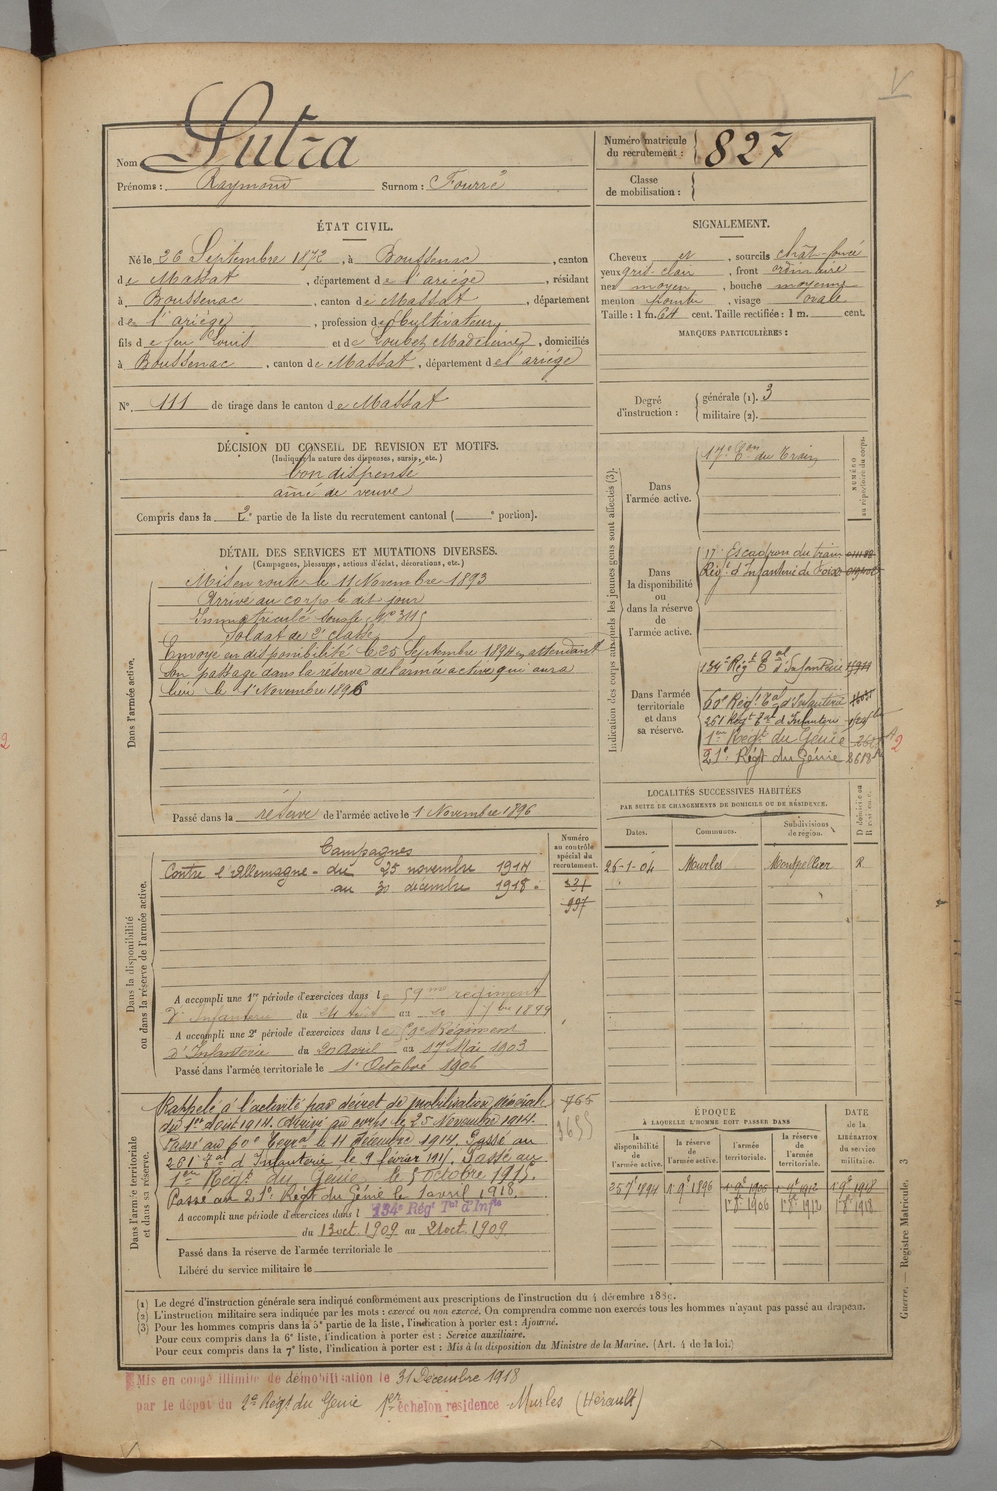 V
Nom Sutra
Prénoms : Raymond Surnom : Fourré
Numéro matricule du recrutement : 827
Classe de mobilisation :
ÉTAT CIVIL.
Né le 26 Septembre 1872, à Boussenac, canton
de Massat, département de l'ariége, résidant
à Boussenac, canton de Massat, département
de l'ariége, profession de Cultivateur
fils de feu Louis et de Loubet Madeleine, domiciliés
à Boussenac, canton de Massat, département de l'ariége
N° 111 de tirage dans le canton de Massat
SIGNALEMENT.
Cheveux et , sourcils chât-foncé
yeux gris-clair, front ordinaire
nez moyen, bouche moyenne
menton , visage ovale
Taille : 1 m. 64 cent. Taille rectifiée : 1 m. cent.
MARQUES PARTICULIÈRES :
Degré d'instruction : générale (1). 3
militaire (2).
DÉCISION DU CONSEIL DE REVISION ET MOTIFS.
(Indiquer la nature des dispenses, sursis, etc.)
bon dispensé
aîné de veuve
Compris dans la 2e partie de la liste du recrutement cantonal ( e portion).
DÉTAIL DES SERVICES ET MUTATIONS DIVERSES.
(Campagnes, blessures, actions d'éclat, décorations, etc.)
Dans l'armée active.
Mis en route le 11 Novembre 1893
Arrivé au corps le dit jour
Immatriculé sous le N° 3115
Soldat de 2e classe
Envoyé en disponibilité le 25 Septembre 1894 en attendant
son passage dans la réserve de l'armée active qui aura
lieu le 1 Novembre 1896
Passé dans la réserve de l'armée active le 1 Novembre 1896
Indication des corps auxquels les jeunes gens sont affectés (3).
NUMÉRO au répertoire du corps.
Dans l'armée active.
17e Eon du Train
Dans la disponibilité ou dans la réserve de l'armée active.
17e Escadron du train
Régt d'Infanterie de Foix
Dans l'armée territoriale et dans sa réserve.
134e Régt Tal d'Infanterie
60e Régt Tal d'Infanterie
261 Régt Tal d'Infanterie
1er Régt du Génie
21e Régt du Génie 2618
2
Dans la disponibilité ou dans la réserve de l'armée active.
Numéro au contrôle spécial du recrutement.
Campagnes
Contre l'Allemagne - du 25 novembre 1914
au 30 décembre 1918.
997
A accompli une 1re période d'exercices dans le 59me régiment
d'Infanterie du 24 août au 1899
A accompli une 2e période d'exercices dans le 59e Régiment
d'Infanterie du 20 Avril au 17 Mai 1903
Passé dans l'armée territoriale le 1er Octobre 1906
LOCALITÉS SUCCESSIVES HABITÉES
PAR SUITE DE CHANGEMENTS DE DOMICILE OU DE RÉSIDENCE.
Dates. Communes. Subdivisions de région. D domicile ou R résidence.
26-1-04 Murles Montpellier R
Dans l'armée territoriale et dans sa réserve.
Rappelé à l'activité par décret de mobilisation générale
du 1er août 1914. Arrivé au corps le 25 Novembre 1914.
Passé au 60e Territal le 11 décembre 1914. Passé au
261 Tal d'Infanterie le 9 février 1915. Passé au
1er Régt du Génie le 5 octobre 1915.
Passé au 21e Régt du Génie le 1 avril 1918.
765
3655
A accompli une période d'exercices dans l 134e Régt Tal d'Infie
du 13 oct. 1909 au 21 oct. 1909
Passé dans la réserve de l'armée territoriale le
Libéré du service militaire le
ÉPOQUE
À LAQUELLE L'HOMME DOIT PASSER DANS
DATE de la LIBÉRATION du service militaire.
la disponibilité de l'armée active. la réserve de l'armée active. l'armée territoriale. la réserve de l'armée territoriale.
25 7e 1894 1er 9e 1896 1er 9e 1906 1er 9e 1912 1er 9e 1918
1er 8e 1906 1er 8e 1912 1er 8e 1918
Guerre. — Registre Matricule. 3
(1) Le degré d'instruction générale sera indiqué conformément aux prescriptions de l'instruction du 4 décembre 1889.
(2) L'instruction militaire sera indiquée par les mots : exercé ou non exercé. On comprendra comme non exercés tous les hommes n'ayant pas passé au drapeau.
(3) Pour les hommes compris dans la 5e partie de la liste, l'indication à porter est : Ajourné.
Pour ceux compris dans la 6e liste, l'indication à porter est : Service auxiliaire.
Pour ceux compris dans la 7e liste, l'indication à porter est : Mis à la disposition du Ministre de la Marine. (Art. 4 de la loi.)
Mis en congé illimité de démobilisation le 31 Décembre 1918
par le dépôt du 2e Régt du Génie 1er échelon résidence Murles (Hérault)